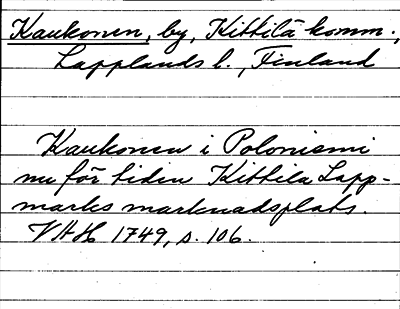 Kaukonen, by, Kittilä komm.,
Lapplands l., Finland
Kaukonen i Poloniemi
nu för tiden Kittila Lapp-
marks marknadsplats.
VAH 1749, s. 106.